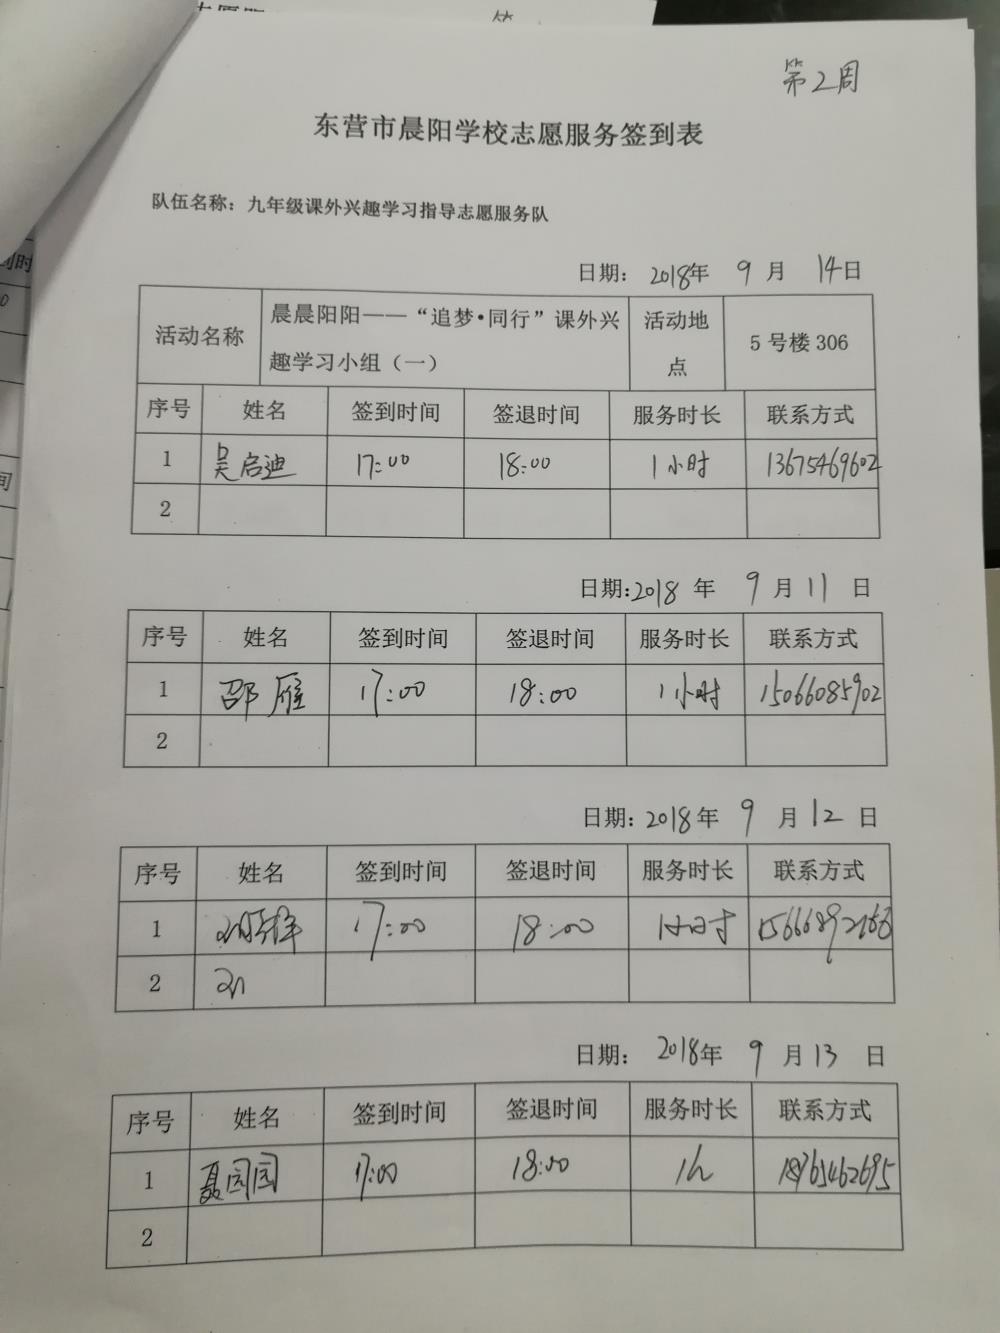 第2周
东营市晨阳学校志愿服务签到表
队伍名称：九年级课外兴趣学习指导志愿服务队
日期： 2018年 9 月 14日
活动名称 晨晨阳阳——“追梦•同行”课外兴趣学习小组（一） 活动地点 5 号楼 306
序号 姓名 签到时间 签退时间 服务时长 联系方式
1 吴启迪 17:00 18:00 1小时 13675469602
2
日期:2018 年 9 月 11 日
序号 姓名 签到时间 签退时间 服务时长 联系方式
1 邵雁 17:00 18:00 1小时 15066085902
2
日期: 2018年 9 月 12 日
序号 姓名 签到时间 签退时间 服务时长 联系方式
1 17:00 18:00 1小时
2
日期： 2018年 9 月 13 日
序号 姓名 签到时间 签退时间 服务时长 联系方式
1 聂园园 17:00 18:00 1h 18765462695
2